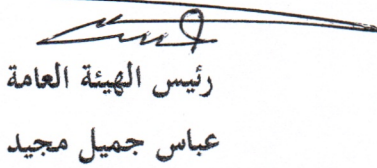 رئيس الهيئة العامة
عباس جميل مجيد